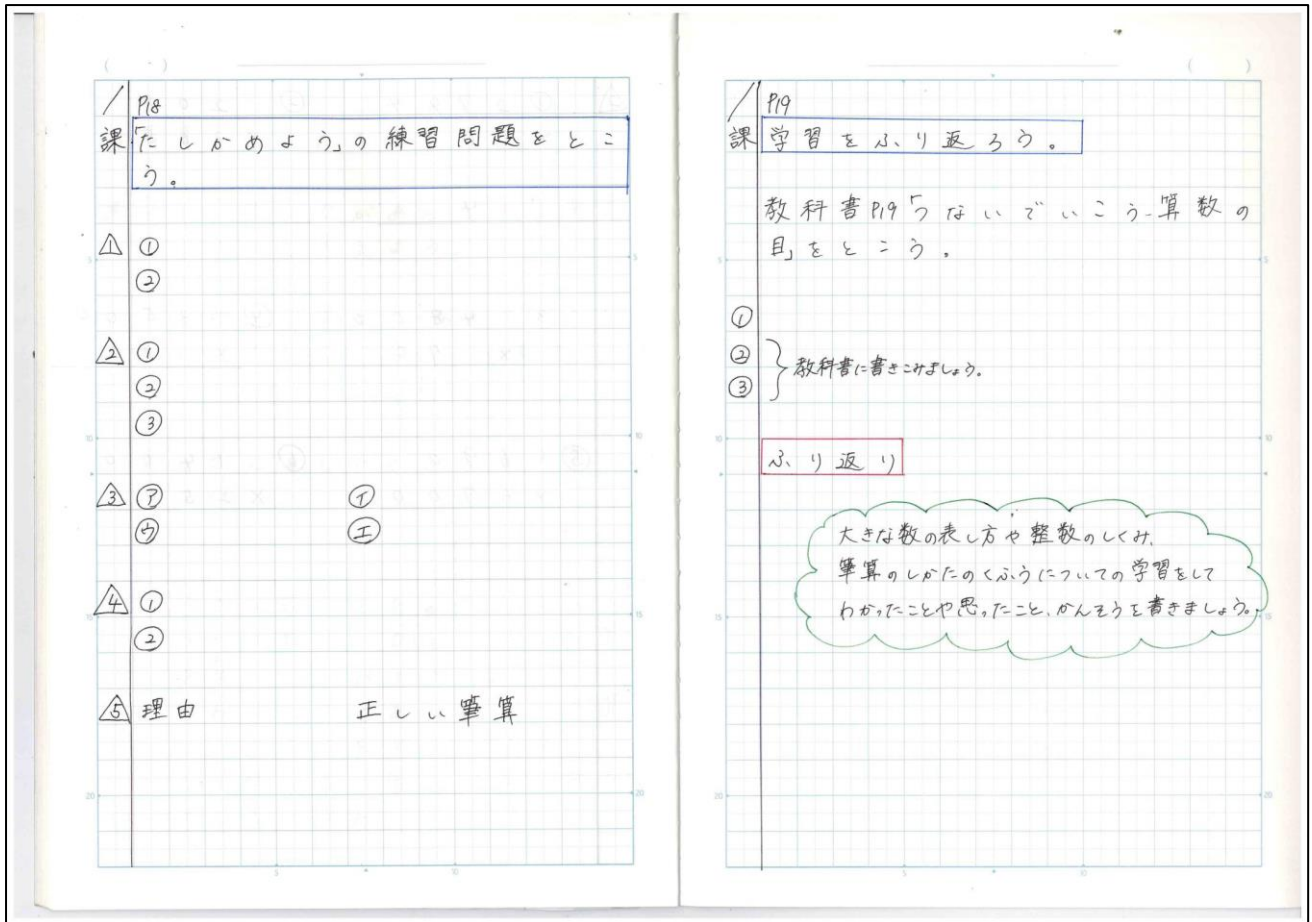 ( )
/ P18
課 「たしかめよう」の練習問題をとこ
う。
△1 ①
②
△2 ①
②
③
△3 ㋐ ㋑
㋒ ㋓
△4 ①
②
△5 理由 正しい筆算
5
10
15
20
5
10
15
20
5
10
( )
/ P19
課 学習をふり返ろう。
教科書P19「つないでいこう算数の
目」をとこう。
①
②
③
教科書に書きこみましょう。
ふり返り
大きな数の表し方や整数のしくみ、
筆算のしかたのくふうについての学習をして
わかったことや思ったこと、かんそうを書きましょう。
5
10
15
20
5
10
15
20
5
10